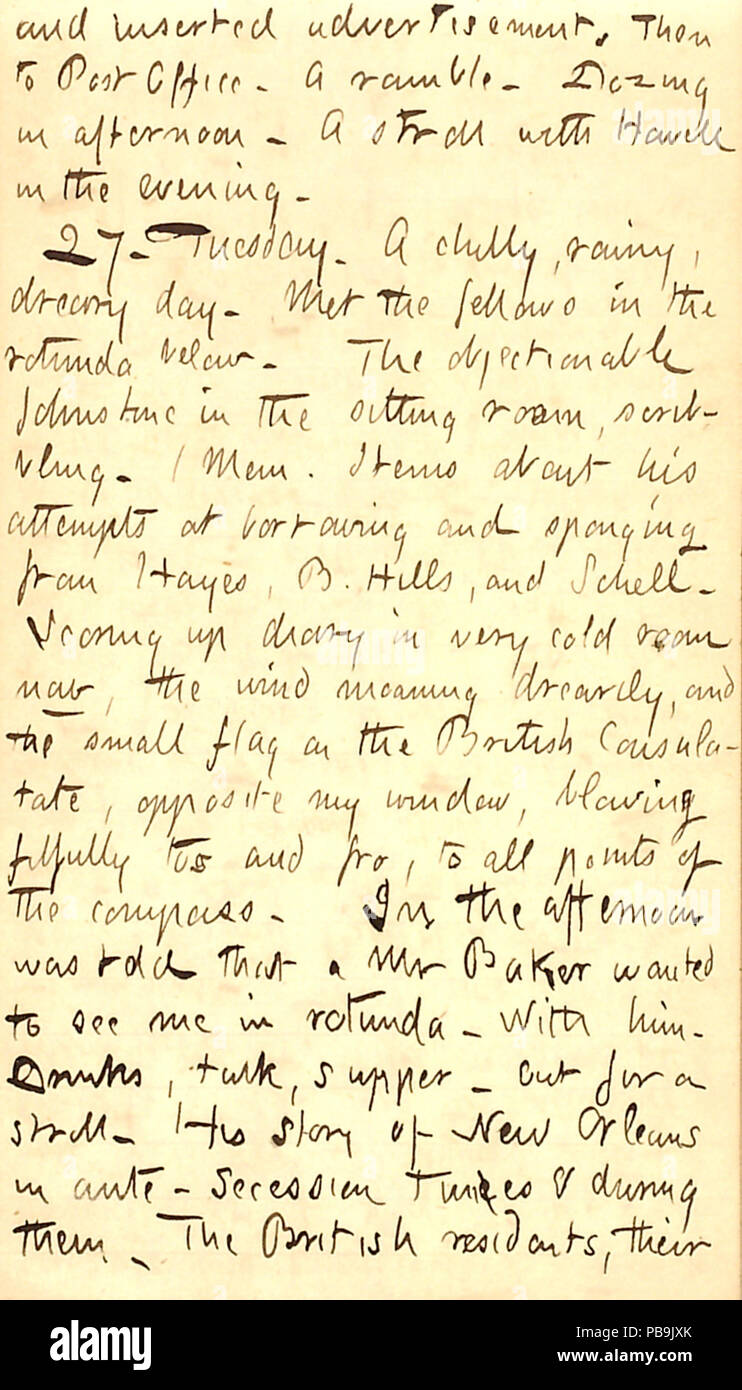 and inserted advertisement. Then
to Post Office. A ramble. Dozing
in afternoon. A stroll with
in the evening.
27. Tuesday. A chilly, rainy,
dreary day. Met the fellows in the
rotunda below. The objectionable
Johnstone in the sitting room, scrib-
bling. (Mem. Items about his
attempts at borrowing and sponging
from Hayes, B. Hills, and Schell.
Scoring up diary in very cold room
now, the wind moaning drearily, and
the small flag on the British Consula-
tate, opposite my window, blowing
fitfully too and fro, to all points of
the compass. In the afternoon
was told that a Mr Baker wanted
to see me in rotunda. With him.
Drinks, talk, supper. Out for a
stroll. His story of New Orleans
in ante-Secession times & during
them. The British residents, their
alamy
Image ID: PB9JXK
www.alamy.com